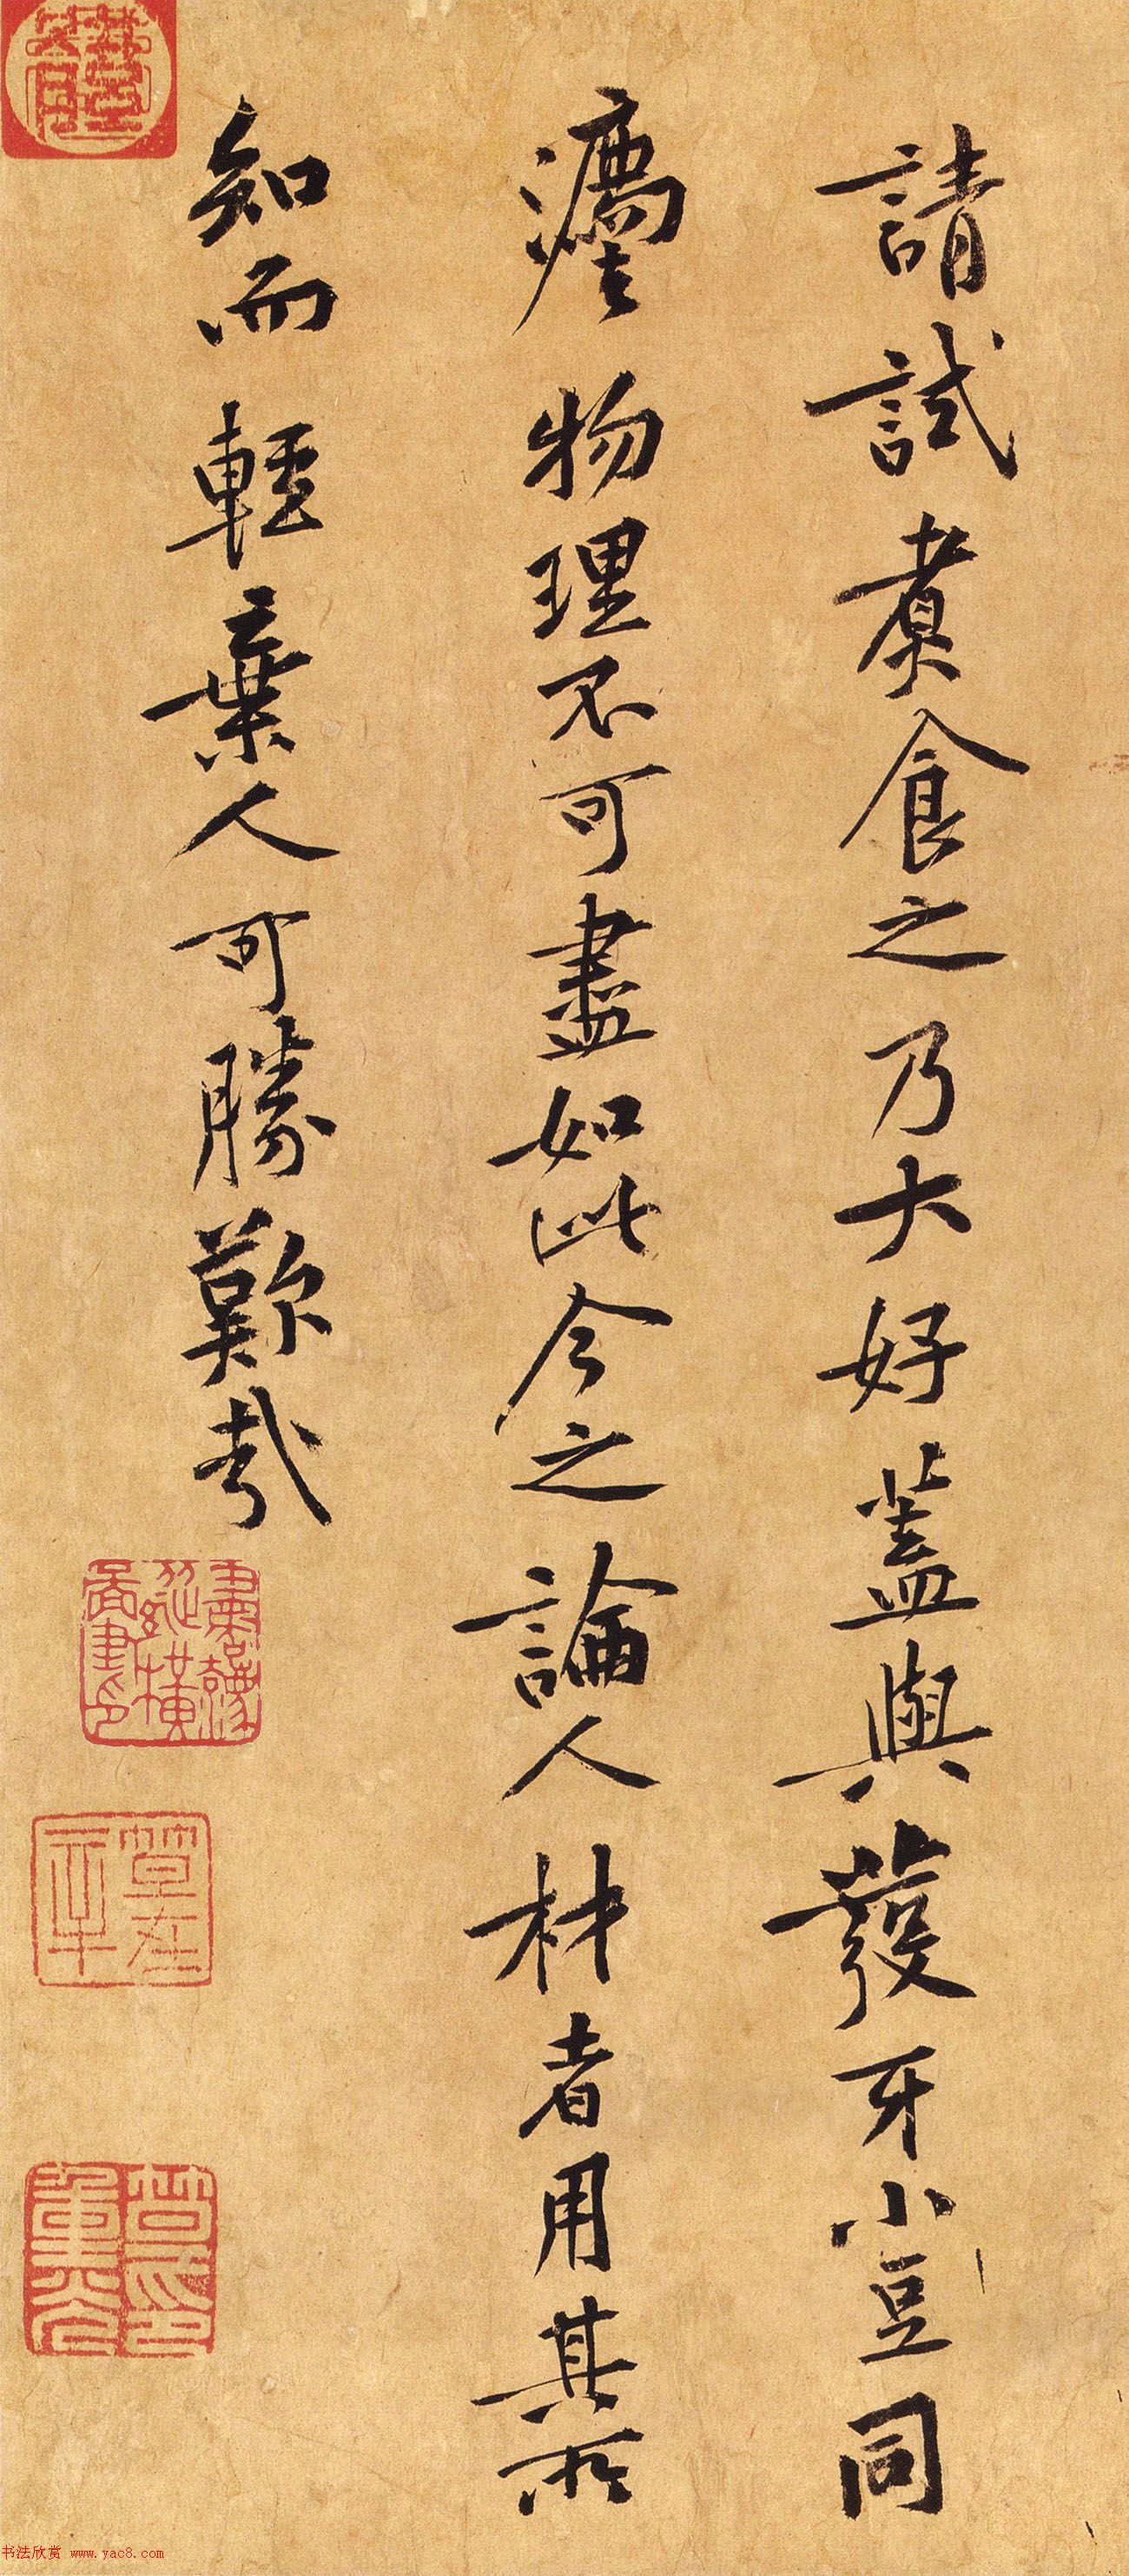 請試煮食之乃大好蓋與發牙小豆同
灋物理不可盡如此今之論人材者用其所
知而輕棄人可勝歎哉
书法欣赏 www.yac8.com